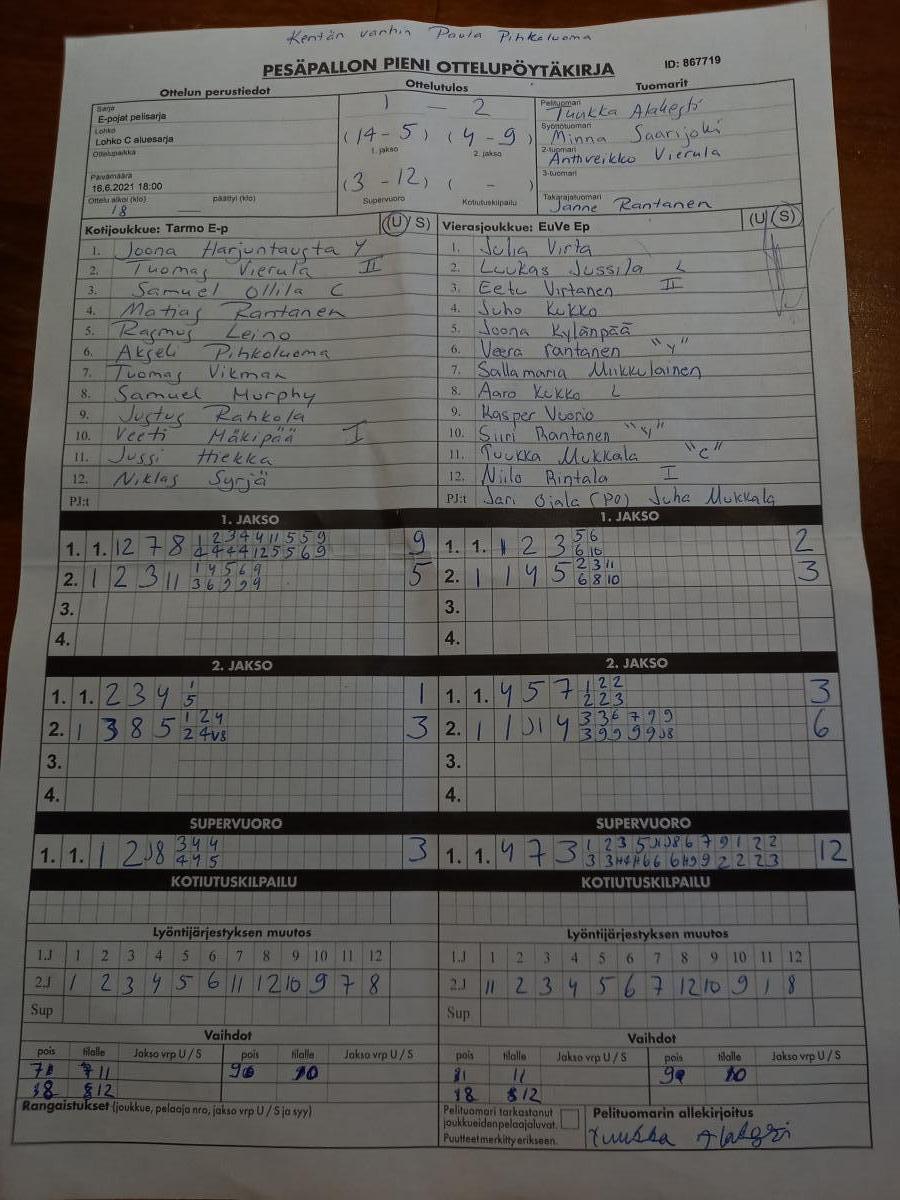 Kentän vanhin Paula Pihkoluoma
PESÄPALLON PIENI OTTELUPÖYTÄKIRJA ID: 867719
Ottelun perustiedot Ottelutulos Tuomarit
Sarja
E-pojat pelisarja
Lohko
Lohko C aluesarja
Ottelupaikka
Päivämäärä
16.6.2021 18:00
Ottelu alkoi (klo) päättyi (klo)
18 —
1 — 2
(14-5) (4-9)
1. jakso 2. jakso
(3-12) ( - )
Supervuoro Kotiutuskilpailu
Pelituomari
Tuukka
Syöttötuomari
Minna Saarijoki
2-tuomari
Anthveikko Vierula
3-tuomari
Takarajatuomari
Janne Rantanen
Kotijoukkue: Tarmo E-p (U/S)
1. Joona Harjuntausta Y
2. Tuomas Vierula II
3. Samuel Ollila C
4. Matias Rantanen
5. Rasmus Leino
6. Akseli Pihkoluoma
7. Tuomas Vikman
8. Samuel Murphy
9. Justus Rahkola
10. Veeti Mäkipää I
11. Jussi Hiekka
12. Niklas Syrjä
PJ:t
Vierasjoukkue: EuVe Ep (U/S)
1. Julia Virta
2. Luukas Jussila L
3. Eetu Virtanen II
4. Juho Kukko
5. Joona Kylänpää
6. Veera Rantanen "Y"
7. Sallamaria Mukkulainen
8. Aaro Kukko L
9. Kasper Vuorio
10. Siiri Rantanen "Y"
11. Tuukka Mukkala "C"
12. Niilo Rintala I
PJ:t Jari Ojala (PO) Juha Mukkala
1. JAKSO 1. JAKSO
1. 1. 12 7 8 9
2. 1 2 3 11 1 4 5 6 9 5
3.
4.
1. 1. 1 2 3 5 6 2
6 10
2. 1 1 4 5 2 3 11 3
6 8 10
3.
4.
2. JAKSO 2. JAKSO
1. 1. 2 3 4 1 1
5
2. 1 3 8 5 1 2 4 3
3.
4.
1. 1. 4 5 7 1 2 2 3
2 2 3
2. 1 1 4 3 3 6 7 9 9 6
3.
4.
SUPERVUORO SUPERVUORO
1. 1. 1 2 3 4 4 3
4 4 5
1. 1. 4 7 3 12
KOTIUTUSKILPAILU KOTIUTUSKILPAILU
Lyöntijärjestyksen muutos
1.J 1 2 3 4 5 6 7 8 9 10 11 12
2.J 1 2 3 4 5 6 11 12 10 9 7 8
Sup
Lyöntijärjestyksen muutos
1.J 1 2 3 4 5 6 7 8 9 10 11 12
2.J 11 2 3 4 5 6 7 12 10 9 1 8
Sup
Vaihdot
pois tilalle Jakso vrp U / S pois tilalle Jakso vrp U / S
11 10
12
Vaihdot
pois tilalle Jakso vrp U / S pois tilalle Jakso vrp U / S
11 10
12
Rangaistukset (joukkue, pelaaja nro, jakso vrp U / S ja syy)
Pelituomari tarkastanut
joukkueiden pelaajaluvat.
Puutteet merkitty erikseen.
Pelituomarin allekirjoitus
Tuukka